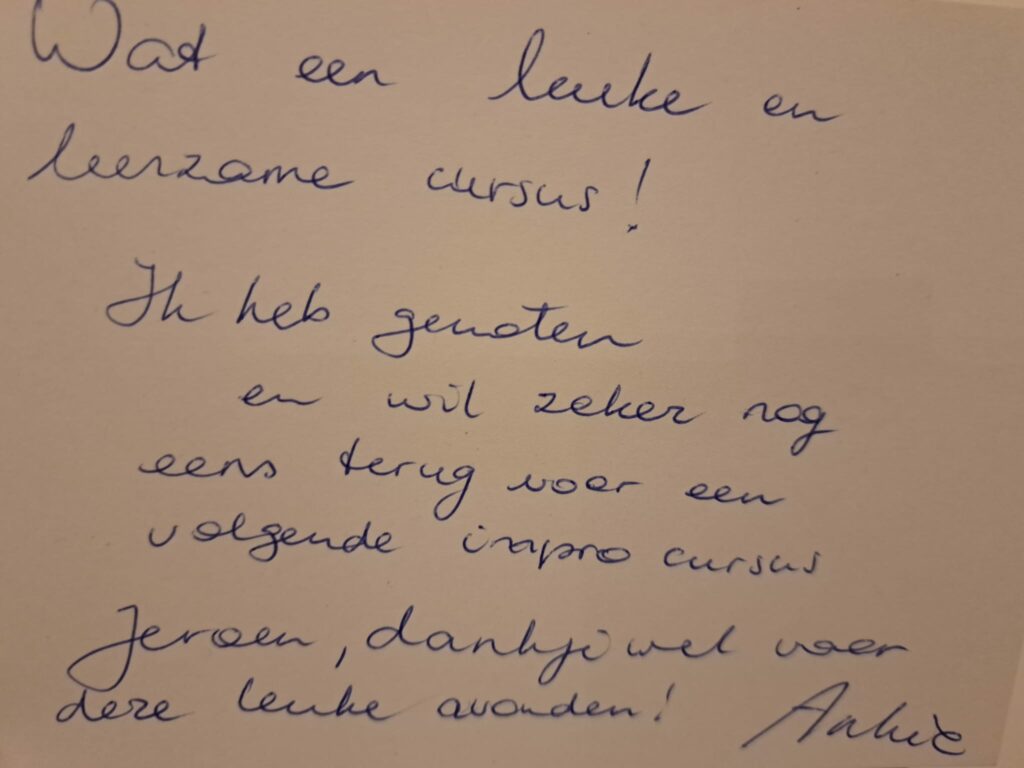 Wat een leuke en
leerzame cursus!
Ik heb genoten
en wil zeker nog
eens terug voor een
volgende impro cursus
Jeroen, dankjiwel voor
deze leuke avonden!
Ankie